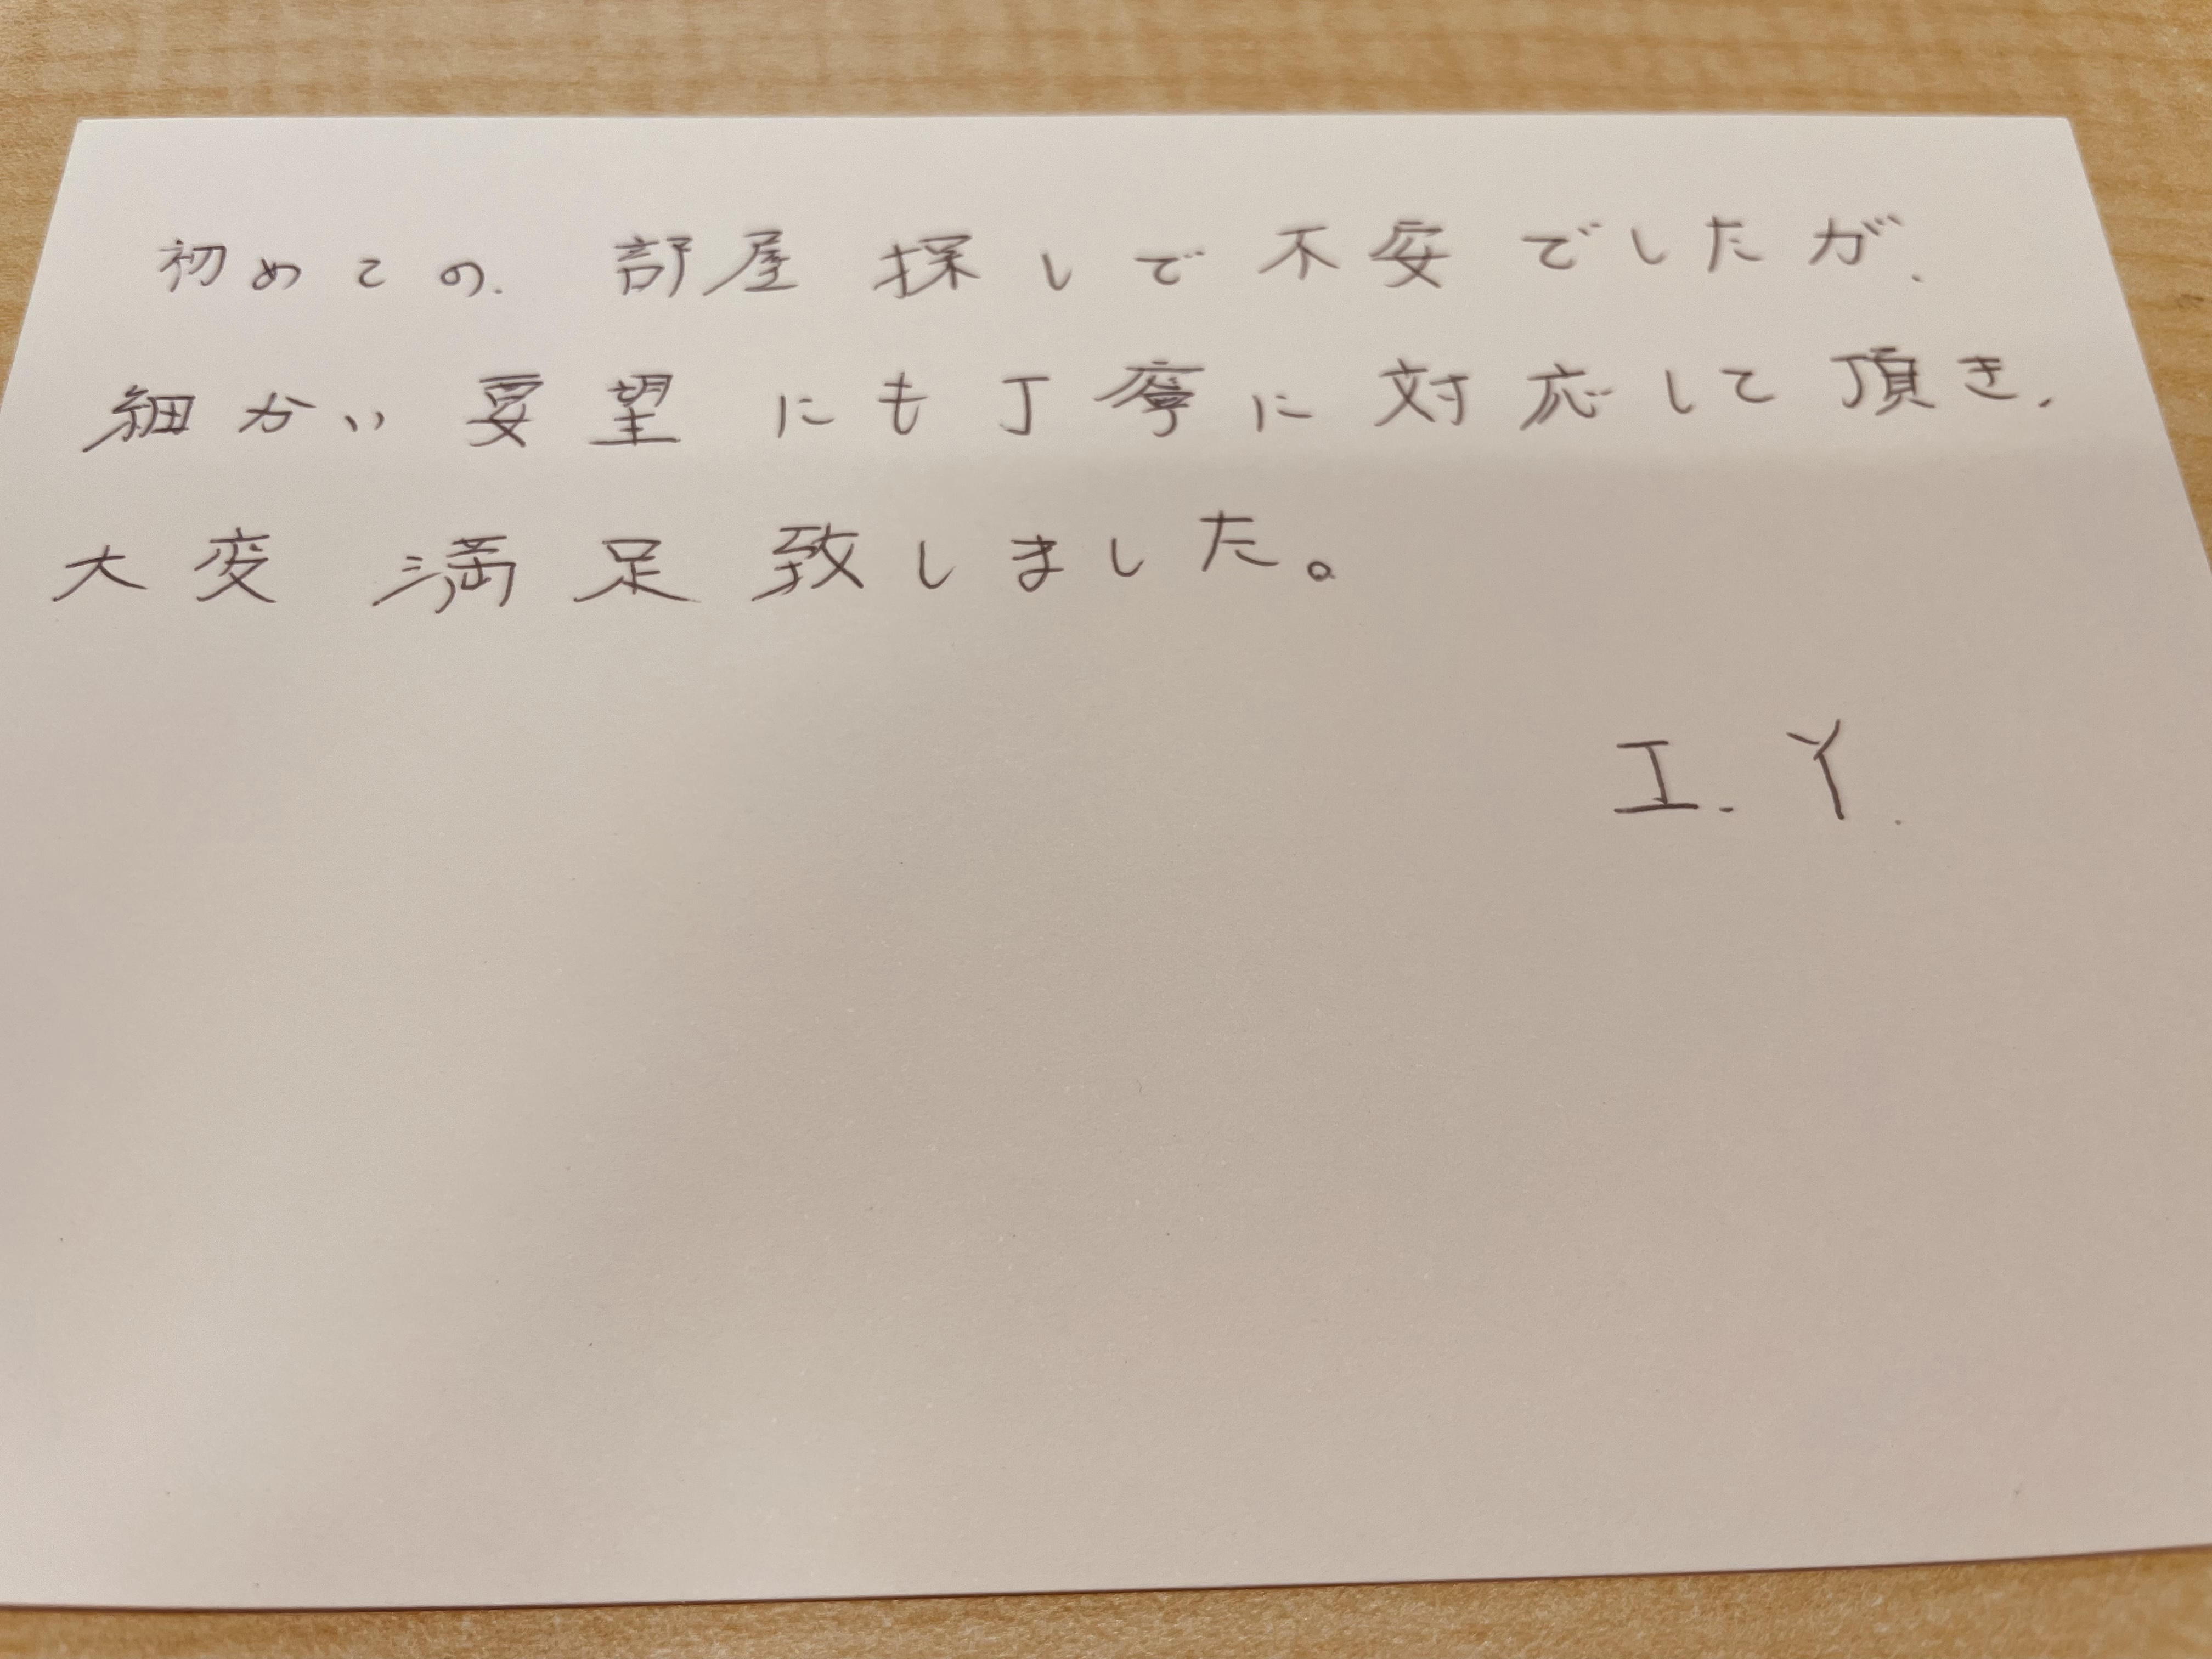 初めての、部屋探しで不安でしたが、
細かい要望にも丁寧に対応して頂き、
大変満足致しました。
I.Y.